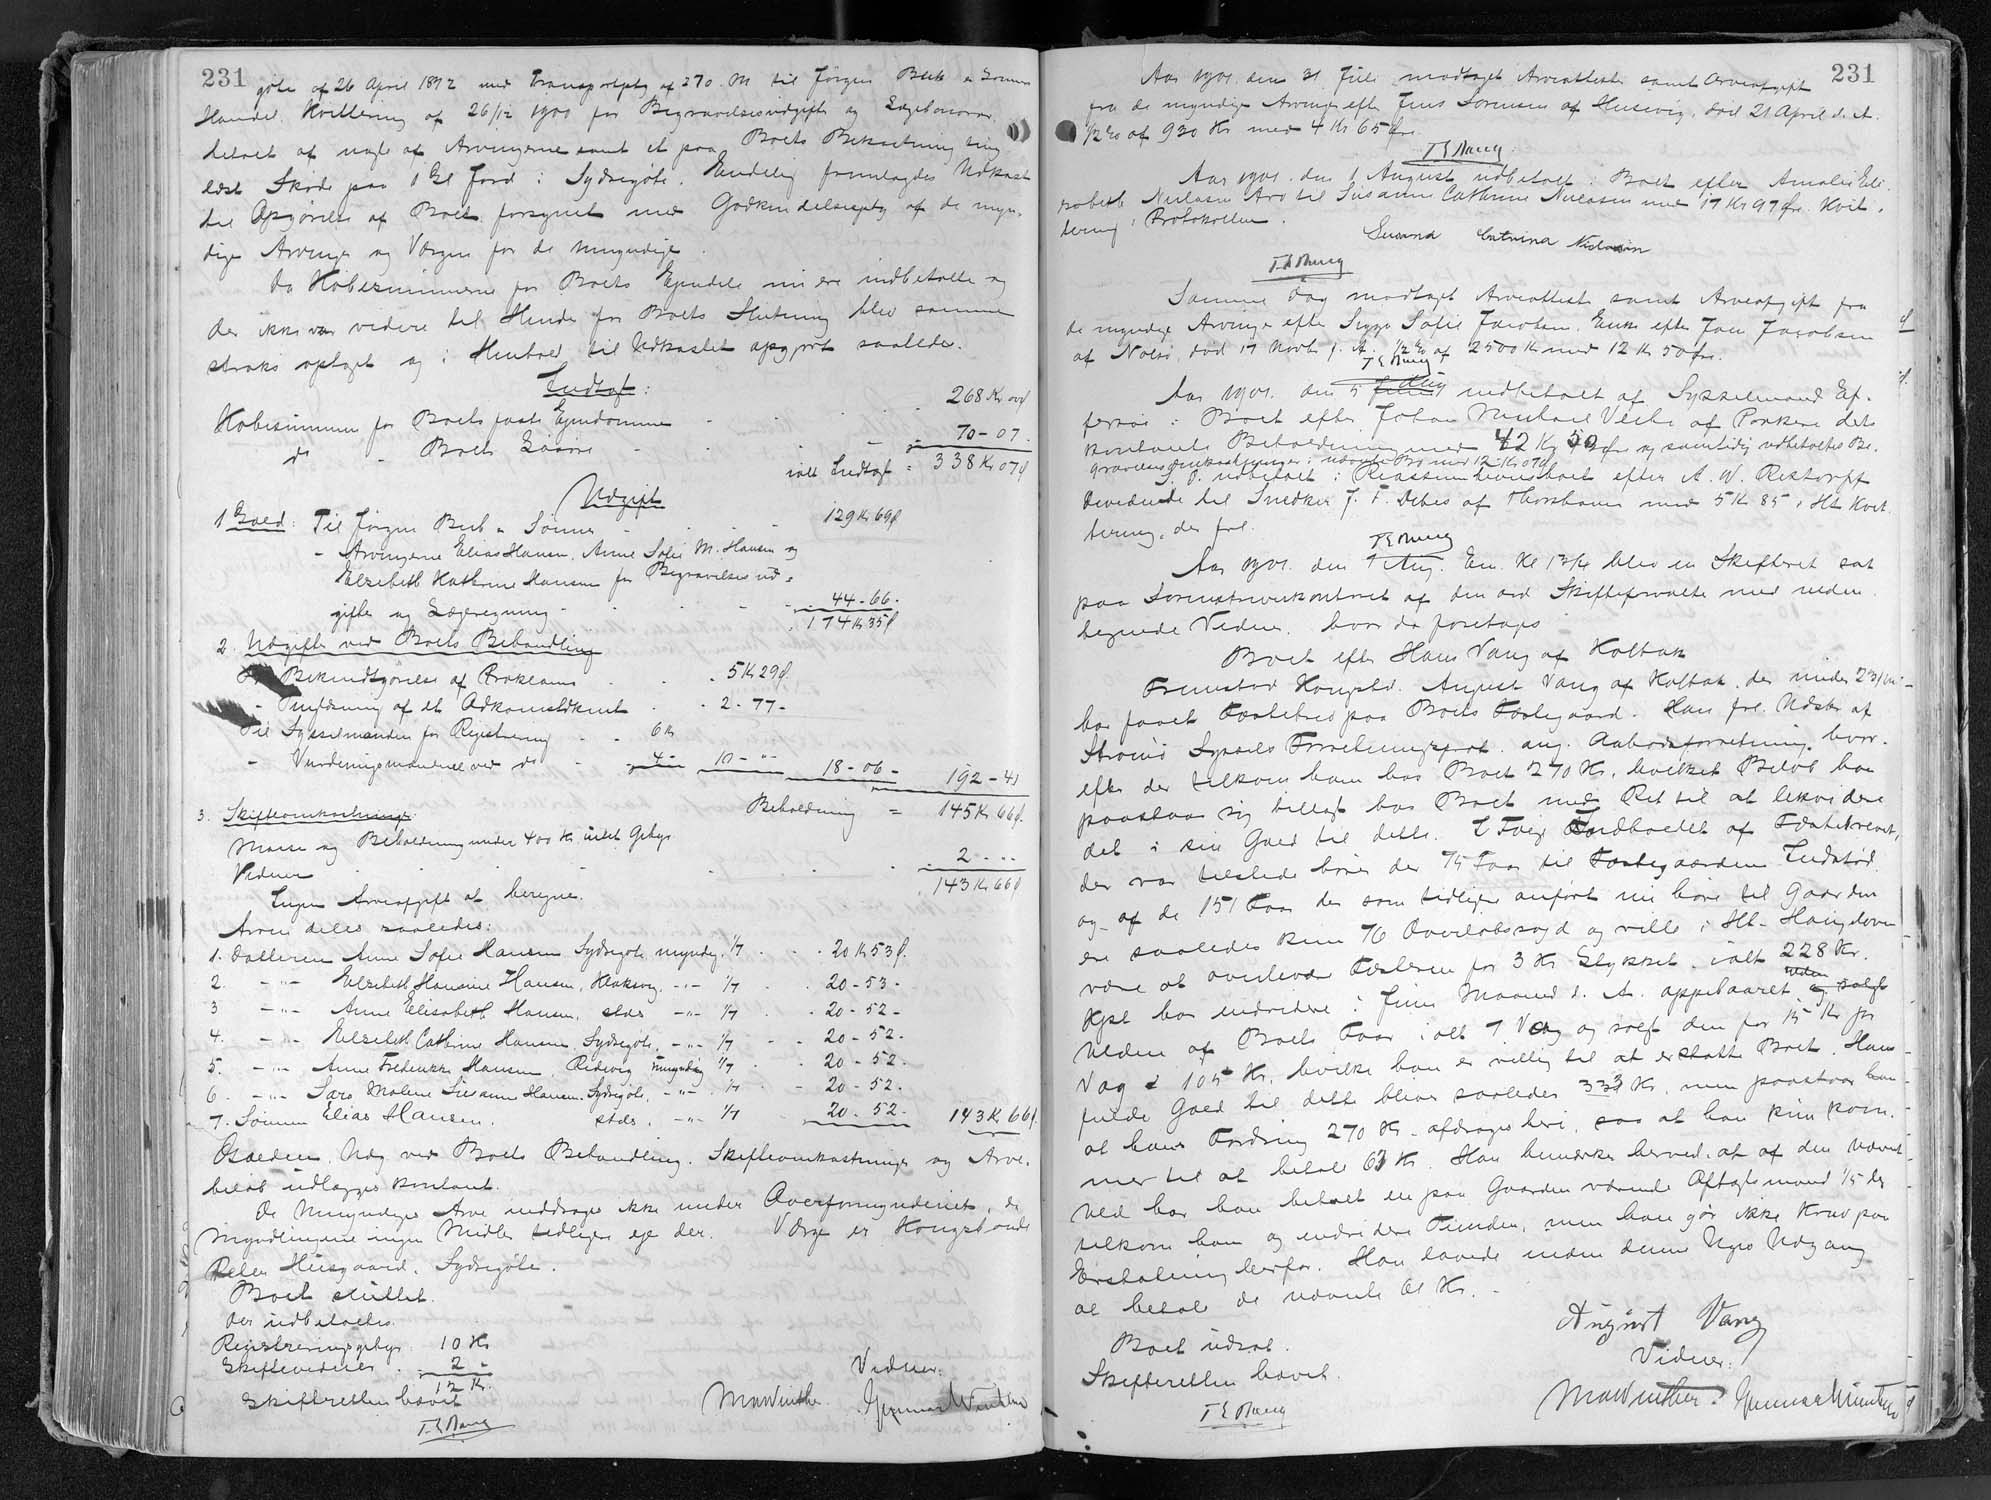 231
göte af 26 April 1892 med Transportptg af 270 M til Jørgen Bech & Sønner
Handel. Kvittering af 26/12 1900 for Begravelsesudgifter og Lægehonorar
betalt af nogle af Arvingerne samt et paa Boets Bekostning ting-
læst Skøde paa 1 Gl Jord i Sydregöte. Endelig fremlagdes Udkast
til Opgörelse af Boet forsynet med Godkendelsesptg af de myn-
dige Arvinger og Værgen for de umyndige.
Da Köbesummerne for Boets Ejendele nu ere indbetalte og
der ikke var videre til Hinder for Boets Slutning blev samme
straks optaget og i Henhold til Udkastet opgjort saaledes.
Indtægt:
Köbesummen for Boets faste Ejendomme 268 Kr
do - Boets Løsøre 70 - 07.
ialt Indtægt = 338 Kr 07 ø
Udgift
1 Gæld: Til Jørgen Bech & Sönner 129 Kr 69 ø
- Arvingerne Elias Hansen, Anne Sofie M. Hansen og
Elsebeth Kathrine Hansen for Begravelsesud-
gifter og Lægeregning 44 - 66.
174 Kr 35 ø
2. Udgifter ved Boets Behandling
Bekendtgörelse af Proklama 5 Kr 29 ø
- Tinglæsning af et Adkomstdokument 2 - 77 -
Til Sysselmanden for Registrering 6 Kr
- Vurderingsmændene ved do 4 - 10 - " 18 - 06 - 192 - 41
Beholdning = 145 Kr 66 ø
3. Skifteomkostninger
Masse og Beholdning under 400 Kr intet Gebyr
Vidner 2 - "
143 Kr 66 ø
Ingen Arveafgift at beregne.
Arven deles saaledes:
1. Datteren Anne Sofie Hansen Sydregöte, myndig, 1/7 20 Kr 53 ø.
2. - " - Elsebeth Hansine Hansen, Klaksvig, - " - 1/7 20 - 53 -
3 - " - Anne Elisabeth Hansen, stds - " - 1/7 20 - 52 -
4. - " - Elsebeth Cathrine Hansen, Sydregöte, - " - 1/7 20 - 52 -
5. - " - Anne Fredrikke Hansen, Redevig umyndig 1/7 20 - 52 -
6. - " - Sara Malene Susanne Hansen, Sydregöte, - " - 1/7 20 - 52 -
7. Sönnen Elias Hansen, stds, - " - 1/7 20 - 52 - 143 Kr 66 ø
Gælden, Udg ved Boets Behandling, Skifteomkostninger og Arve-
beløb udlægges kontant.
De Umyndiges Arv inddrages ikke under Overformynderiet, da
myndlingerne ingen Midler tidligere eje der. Værge er Kongsbonde
Peder Húsgaard, Sydregöte.
Boet sluttet.
Der udbetaltes
Registreringsgebyr 10 Kr
Skiftevidner 2 -
12 Kr.
Skifteretten hævet
Vidner:
MAWinther. Gunnar Winther
231
Aar 1901 den 31 Juli modtaget Arveattest samt Arveafgift
fra de myndige Arvinger efter Jens Sørensen af Husevig, död 21 April d. A.
1/2 % af 930 Kr med 4 Kr 65 øre
Aar 1901 den 1 August udbetalt i Boet efter Amalie Eli-
sabeth Nielasen Arv til Susanne Cathrine Nielasen med 17 Kr 97 øre. Kvit-
tering i Protokollen.
Susanna Catrina Nielasen
Samme Dag modtaget Arveattest samt Arveafgift fra
de myndige Arvinger efter Sigga Sofie Jacobsen, Enke efter Joen Jacobsen
af Nolsö, död 17 Novbr f. A. 1/2 % af 2500 Kr med 12 Kr 50 øre.
Aar 1901 den 5 Aug indbetalt af Sysselmand Ef-
fersöe i Boet efter Johan Michael Vethe af Porkere dets
kontante Beholdning med 42 Kr øre og samtidig udbetaltes Be-
gravelsesomkostninger i nævnte Bo med 12 Kr 07 ø
S. D. udbetalt i Reassumtionsboet efter A. W. Restorff
Dividende til Snedker J. F. Debes af Thorshavn med 5 Kr 85 i Ht Kvit-
tering, der frl.
Aar 1901 den 7 Aug. Em. Kl blev en Skifteret sat
paa Sorenskriverkontoret af den ord Skifteforvalter med neden-
tegnede Vidner, hvor da foretoges
Boet efter Hans Vang af Kaltbak
Fremstod Kongsbd. August Vang af Kaltbak, der under
har faaet Fæstebrev paa Boets Fæstegaard. Han frl. Udskr af
Strömö Syssels Forretningsprot. ang. Aabodsforretning, hvor-
efter der tilkom ham hos Boet 270 Kr, hvilket Beløb han
paastaar sig tillagt hos Boet med Ret til at likvidere
det i sin Gæld til dette. I Følge Indholdet af Fæstebrevet,
der var tilstede hörer der 75 Faar til Fæstegaardens Indstöd
og af de 151 Faar der som tidligere anført nu høre til Gaarden
ere saaledes kun 76 Overløbsgods og ville i Ht. Haugeloven
være at overlevere Fæsteren for 3 Kr Stykket, ialt 228 Kr.
Kpt har endvidere i Juni Maaned d. A. oppebaaret
Ulden af Boets Faar ialt 7 Vog og solgt den for 15 Kr pr
Vog = 105 Kr, hvilke han er villig til at erstatte Boet. Hans
fulde Gæld til dette bliver saaledes 333 Kr, men paastaar han
at hans Fordring 270 Kr. afdrages heri, saa at han kun kom-
mer til at betale 63 Kr. Han bemærker herved, at af den nævnte
Uld har han betalt en paa Gaarden værende Aftægtsmand 1/5 der
tilkom ham og endvidere Tienden, men han gör ikke Krav paa
Erstatning herfor. Han lovede inden denne Uges Udgang
at betale de nævnte 63 Kr. -
August Vang
Boet udsat.
Vidner:
Skifteretten hævet.
MAWinther. Gunnar Winther